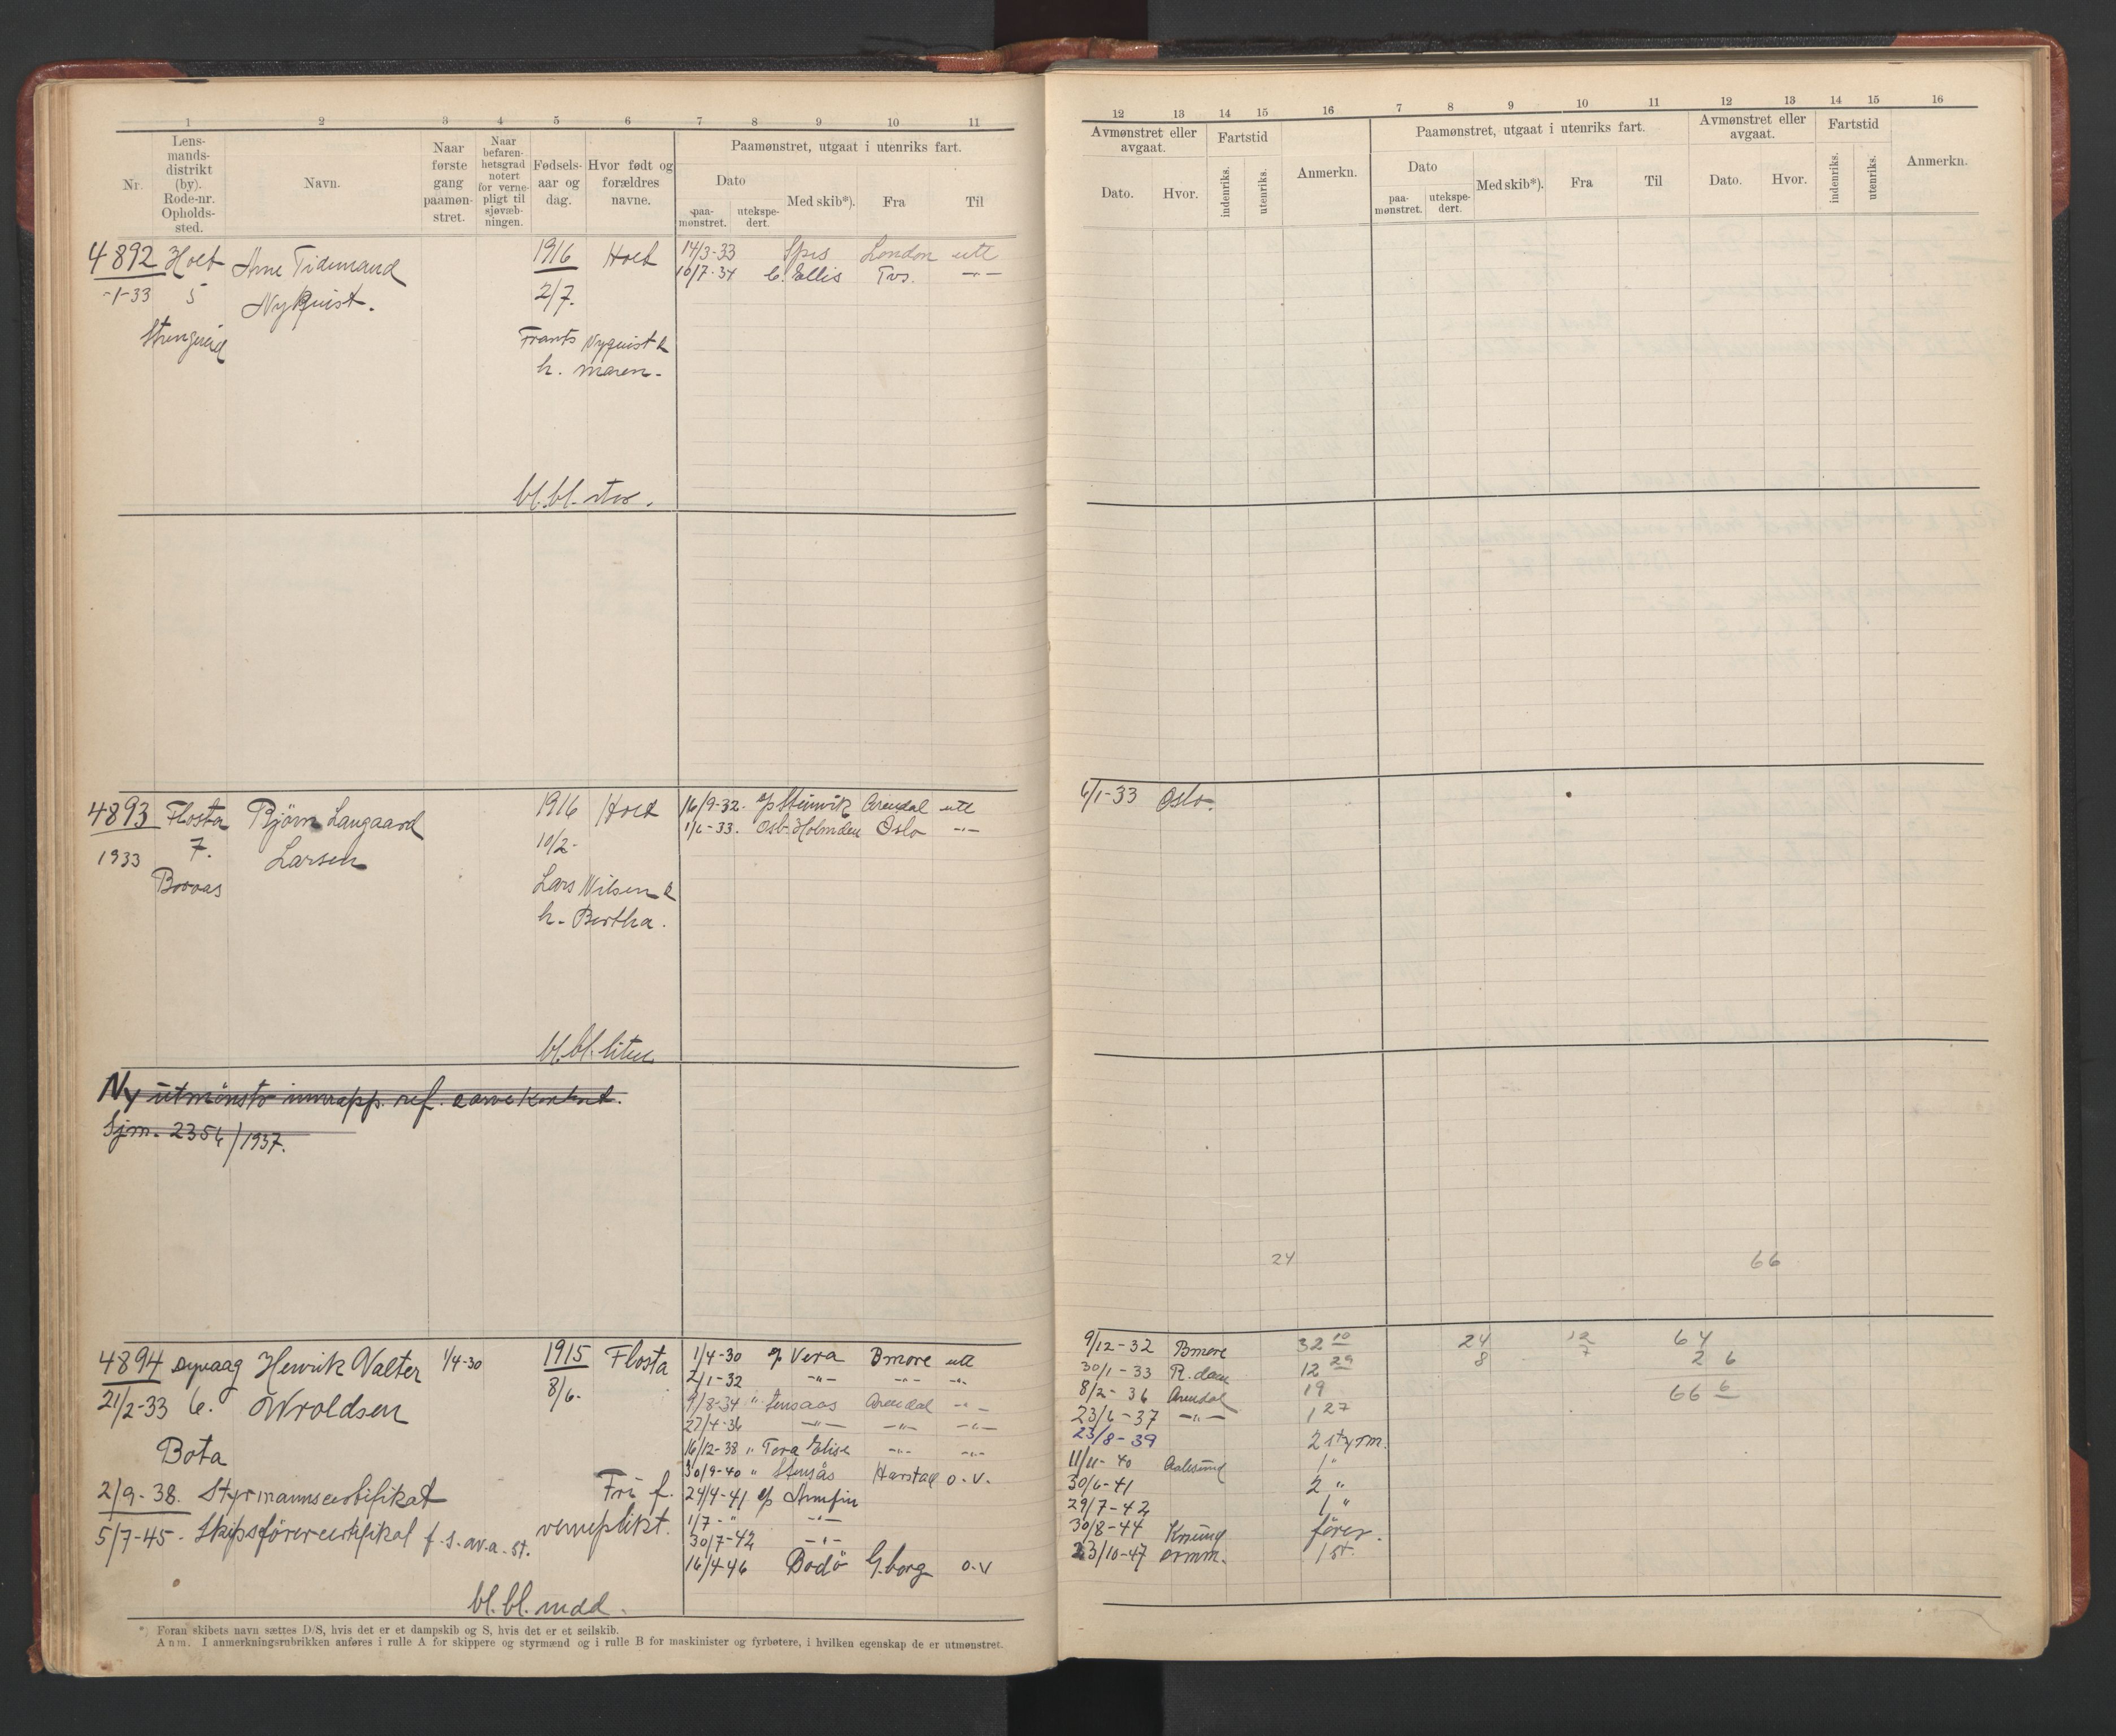 1 2 3 4 5 6 7 8 9 10 11
Nr. Lensmandsdistrikt (by). Rode-nr. Opholdssted. Navn. Naar første gang paamønstret. Naar befarenhetsgrad notert for vernepligt til sjøvæbningen. Fødselsaar og dag. Hvor født og forældres navne. Paamønstret, utgaat i utenriks fart.
Dato Med skib*). Fra Til
paamønstret. utekspedert.
12 13 14 15 16 7 8 9 10 11 12 13 14 15 16
Avmønstret eller avgaat. Fartstid Anmerkn. Paamønstret, utgaat i utenriks fart. Avmønstret eller avgaat. Fartstid Anmerkn.
Dato. Hvor. indenriks. utenriks. Dato Med skib*). Fra Til Dato. Hvor. indenriks. utenriks.
paamønstret. utekspedert.
4892 Holt Arne Tidemand 1916 Holt 14/3-33 London utl
-1-33 5 Nyquist. 2/7. 10/7-34 C. Ellis Tvs. -"-
Strengereid Frants Nyquist &
h. Maren.
bl.bl. stor.
4893 Flosta Bjørn Langaard 1916 Holt 16/9-32. Arendal utl 6/1-33 Oslo.
1933 7. Larsen 10/2- 1/6-33. Holmden Oslo -"-
Borøas Lars Nilsen &
h. Bertha.
bl.bl. liten
Ny utmønstr innrapp. ref.
Sjm. 2354/1937.
24 66
4894 Dypvaag Henrik Valter 1/4-30 1915 Flosta 1/4-30 Vera Bmore utl 9/12-32 Bmore 32 10 24 64
21/2-33 6. Wroldsen 8/6. 2/1-32 -"- -"- -"- 30/1-33 R.dam 12 29 8 2 6
9/8-34 " Stensaas Arendal -"- 8/2-36 Arendal 19 66 6
27/4-36 -"- -"- -"- 23/6-37 -"- 1 27
Bota 16/12-38 " Tora Elise -"- -"- 23/8-39 2 styrm.
30/9-40 " Stensås Harstad o.v. 11/11-40 Aalesund 1 "
2/9-38. Styrmannscertifikat Fri f. 24/4-41 Arnfin 30/6-41 2 "
verneplikt. 1/7-" -"- 29/7-42 1 "
5/7-45. Skipsførercertifikat f.s.av.a.st. 30/7-42 -"- 30/8-44 Krsund fører.
16/4-46 Bodø G.borg o.v 23/10-47 1 st.
bl.bl. midd.
*) Foran skibets navn sættes D/S, hvis det er et dampskib og S, hvis det er et seilskib.
Anm. I anmerkningsrubrikken anføres i rulle A for skippere og styrmænd og i rulle B for maskinister og fyrbøtere, i hvilken egenskap de er utmønstret.